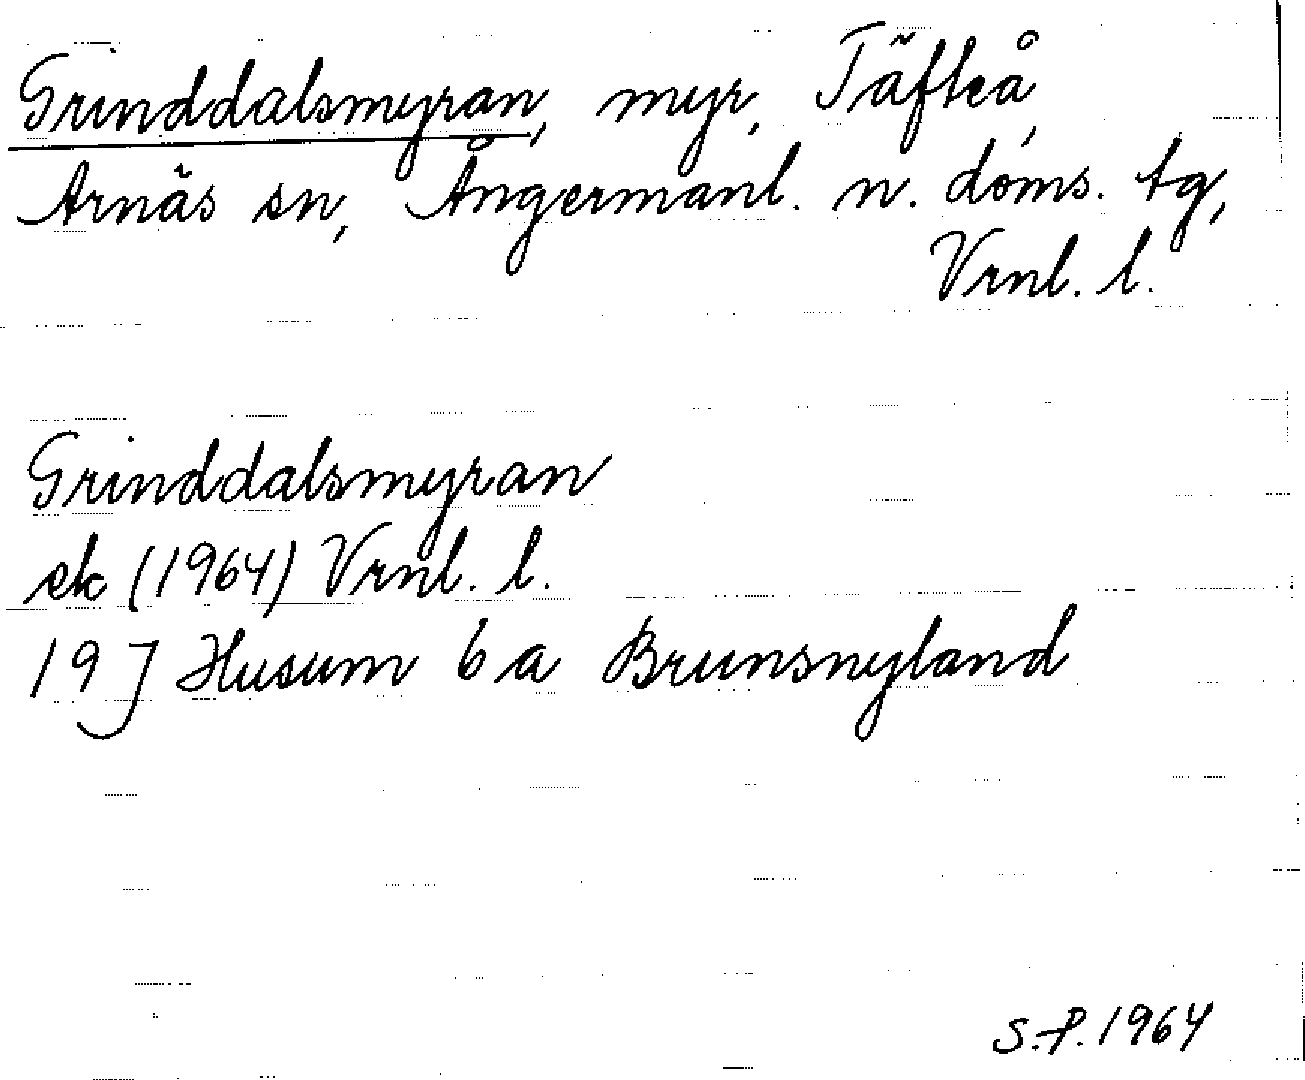 Grinddalsmyran, myr, Täfteå,
Arnäs sn, Ångermanl. n. doms. tg,
Vrnl. l.
Grinddalsmyran
ek (1964) Vrnl. l.
19 J Husum 6 a Brunsnyland
S.-P. 1964